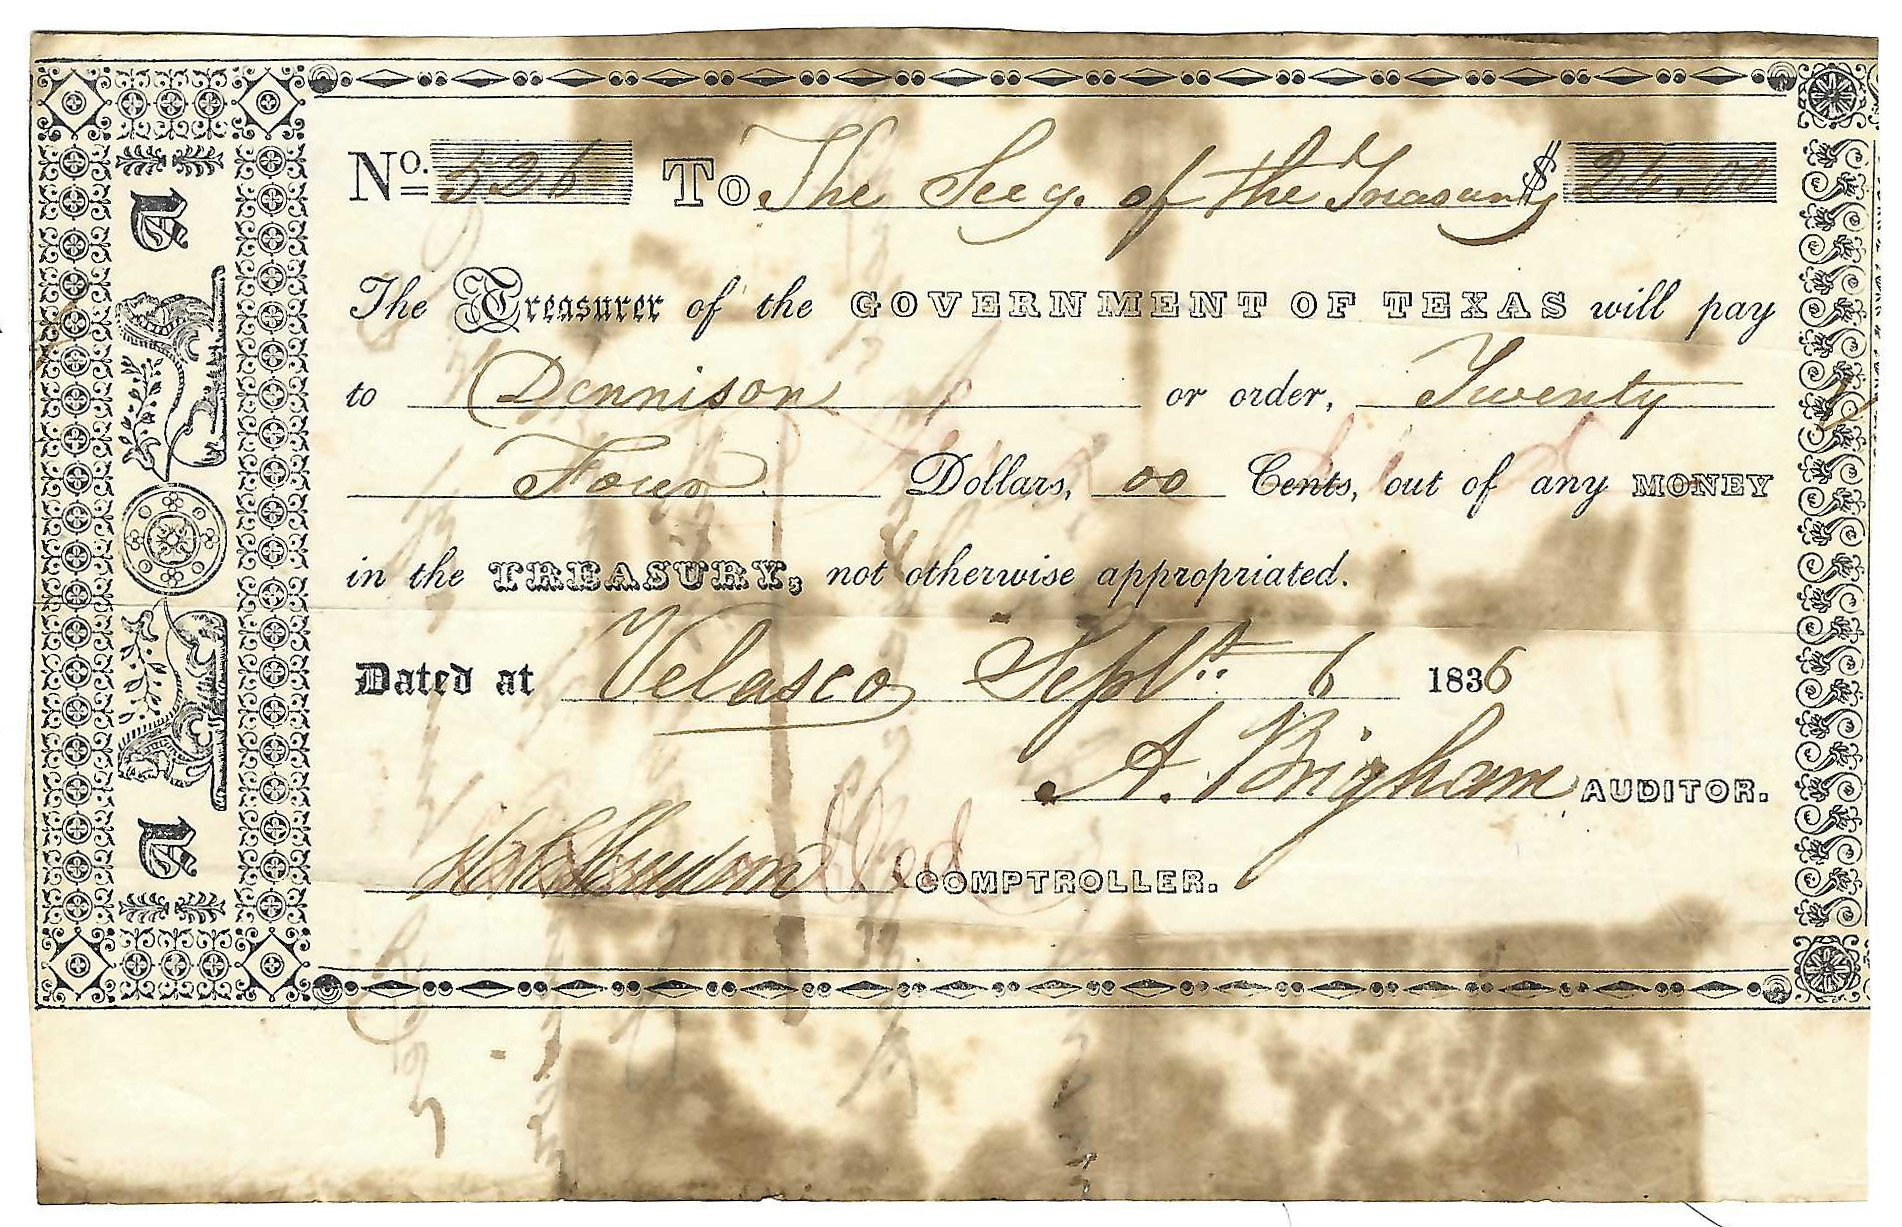 No. 526 To The Secy. of the Treasury $ 24.00
The Treasurer of the GOVERNMENT OF TEXAS will pay
to Dennison or order, Twenty
Four Dollars, 00 Cents, out of any MONEY
in the TREASURY, not otherwise appropriated.
Dated at Velasco Sept. 6 1836
A. Brigham AUDITOR.
COMPTROLLER.